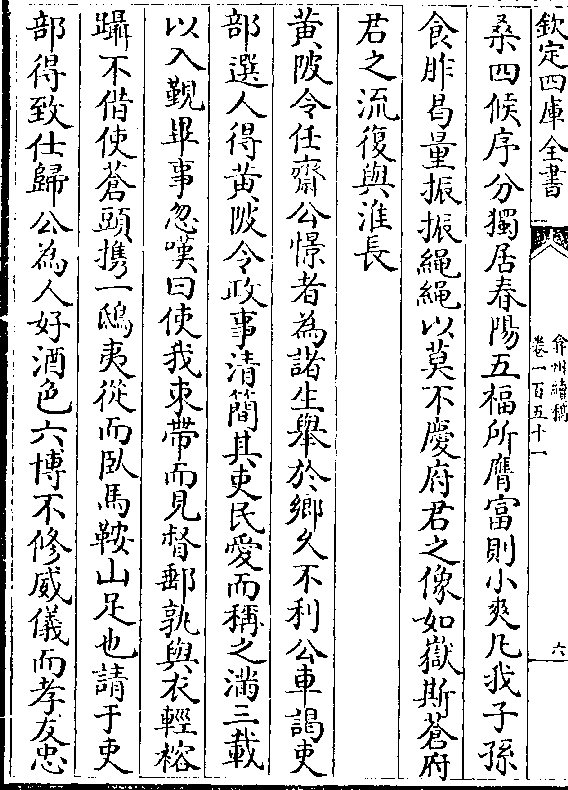 欽定四庫全書
弇州續稿
卷一百五十一
六
桑四候序分獨居春陽五福所膺富則小爽凡我子孫
食胙曷量振振繩繩以莫不慶府君之像如嶽斯蒼府
君之流復與淮長
黄陂令任齋公憬者為諸生舉於鄉久不利公車謁吏
部選人得黄陂令政事清簡其吏民愛而稱之滿三載
以入覲畢事忽嘆曰使我束帶而見督郵孰與衣輕裕
躡不借使蒼頭携一鴟夷從而臥馬鞍山足也請于吏
部得致仕歸公為人好酒色六博不修威儀而孝友忠